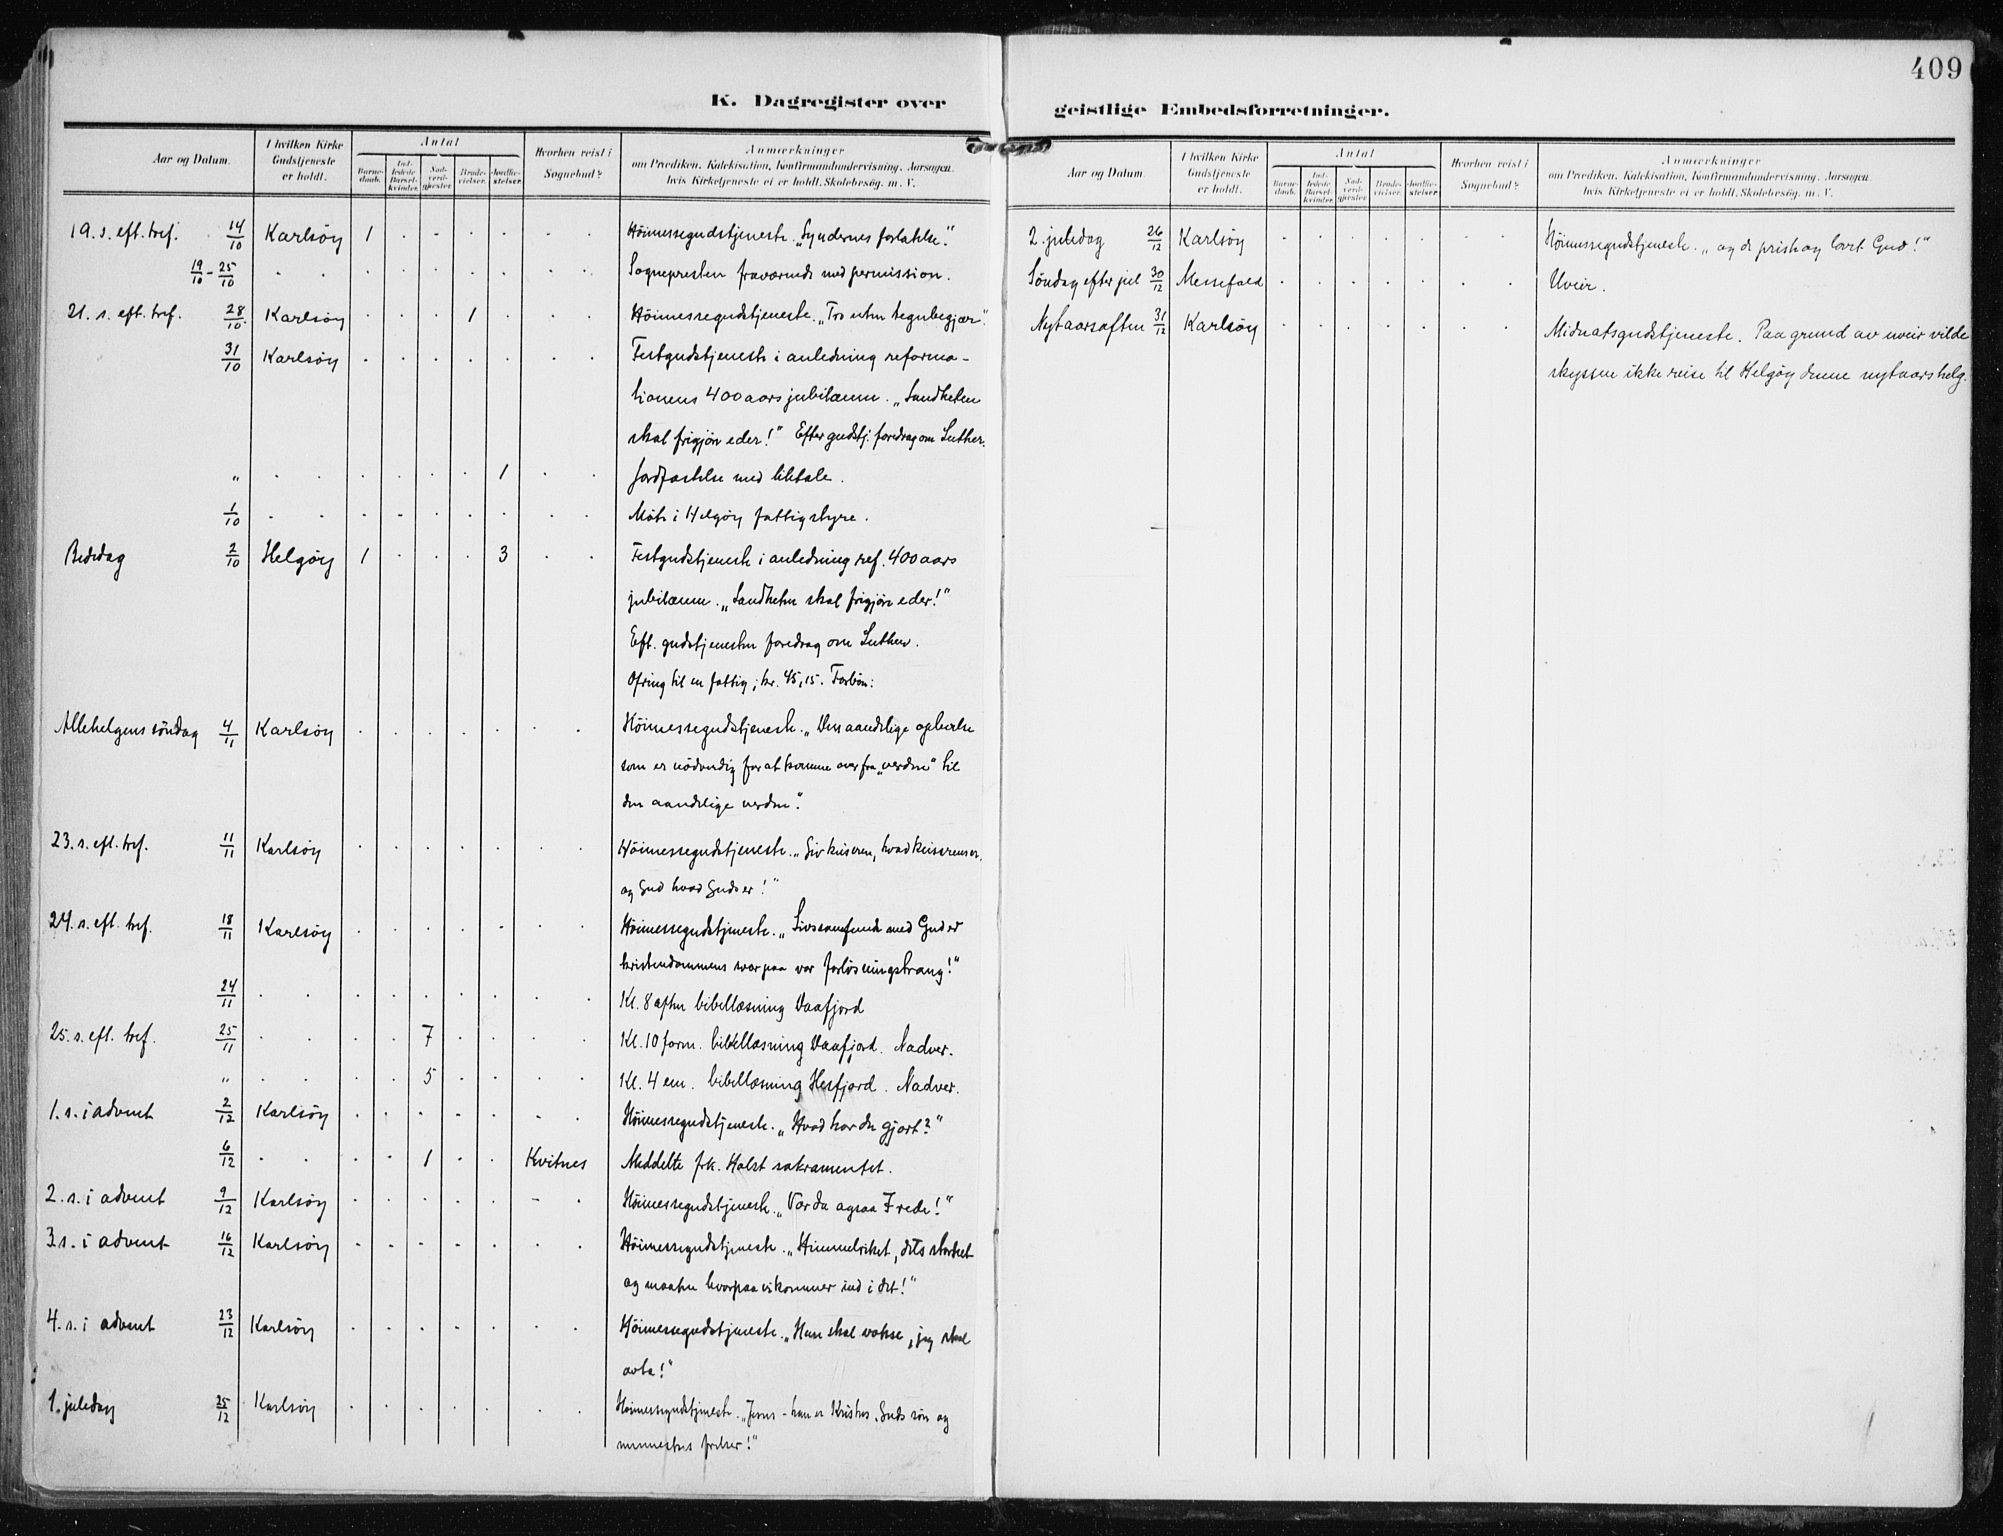 409
K. Dagregister over
geistlige Embedsforretninger.
Aar og Datum.
I hvilken Kirke Gudstjeneste er holdt.
Antal
Barnedaab.
Indledede Barselkvinder.
Nadverdgjester.
Brudevielser.
Jordfæstelser.
Hvorhen reist i Sognebud?
Anmerkninger
om Prædiken, Katekisation, Konfirmandundervisning, Aarsagen,
hvis Kirketjeneste ei er holdt, Skolebesøg, m. V.
19. s. eft. tref. 14/10 Karlsøy 1 Høimessegudstjeneste. „Syndernes forlatelse."
19/10 - 25/10 Sognepresten fraværende med permission.
21. s. eft. tref. 28/10 Karlsøy 1 Høimessegudstjeneste. „Tro uten tegnbegjær".
31/10 Karlsøy Festgudstjeneste i anledning reforma-
tionens 400 aars jubilæum. „Sandheten
skal frigjøre eder!" Efter gudstj. foredrag om Luther.
„ 1 Jordfæstelse med liktale.
1/10 Møte i Helgøy fattigstyre.
Bededag 2/10 Helgøy 1 3 Festgudstjeneste i anledning ref. 400 aars
jubilæum. „Sandheten skal frigjøre eder!"
Eft. gudstjenesten foredrag om Luther.
Ofring til en fattig; kr. 45,15. Forbøn:
Allehelgens søndag 4/11 Karlsøy Høimessegudstjeneste. „Den aandelige oplevelse
som er nødvendig for at komme over fra „verden" til
den aandelige verden".
23. s. eft. tref. 11/11 Karlsøy Høimessegudstjeneste. „Giv keiseren, hvad keiserens er,
og Gud hvad Guds er!"
24. s. eft. tref. 18/11 Karlsøy Høimessegudstjeneste. „Livssamfund med Gud er
kristendommens svar paa vor forløsningstrang!"
24/11 Kl. 8 aften bibellæsning Vaafjord
25. s. eft. tref. 25/11 7 Kl. 10 form. bibellæsning Vaafjord. Nadver.
„ 5 Kl. 4 em. bibellæsning Hesfjord. Nadver.
1. s. i advent 2/12 Karlsøy Høimessegudstjeneste. „Hvad har du gjort?"
6/12 1 Kvitnes Meddelte frk. Holst sakramentet.
2. s. i advent 9/12 Karlsøy Høimessegudstjeneste. „Var du ogsaa Frede!"
3. s. i advent 16/12 Karlsøy Høimessegudstjeneste. „Himmelriket, dets storhet
og maaten hvorpaa vi kommer ind i det!"
4. s. i advent 23/12 Karlsøy Høimessegudstjeneste. „Han skal vokse, jeg skal
avta!"
1. juledag 25/12 Karlsøy Høimessegudstjeneste. „Jesus - han er Kristus, Guds søn og
menneskenes frelser!"
Aar og Datum.
I hvilken Kirke Gudstjeneste er holdt.
Antal
Barnedaab.
Indledede Barselkvinder.
Nadverdgjester.
Brudevielser.
Jordfæstelser.
Hvorhen reist i Sognebud?
Anmærkninger
om Prædiken, Katekisation, Konfirmandundervisning, Aarsagen,
hvis Kirketjeneste ei er holdt, Skolebesøg, m. V.
2. juledag 26/12 Karlsøy Høimessegudstjeneste. „og de priste og lovet Gud!"
Søndag efter jul 30/12 Messefald Uveir.
Nytaarsaften 31/12 Karlsøy Midnatsgudstjeneste. Paa grund av uveir vilde
skyssen ikke reise til Helgøy denne nytaarshelg.